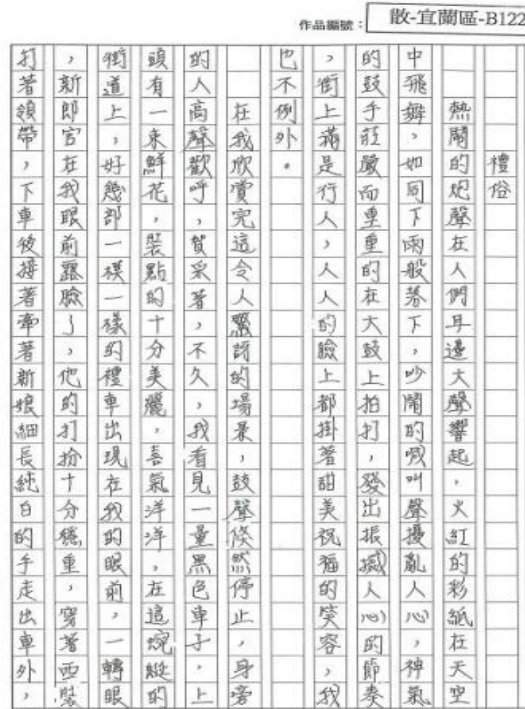 作品編號：
散-宜蘭區-B122
禮俗
熱鬧的炮聲在人們耳邊大聲響起，火紅的彩紙在天空
中飛舞，如同下雨般落下，吵鬧的喊叫聲擾亂人心，神氣
的鼓手莊嚴而重重的在大鼓上拍打，發出振撼人心的節奏
，街上滿是行人，人人的臉上都掛著甜美祝福的笑容，我
也不例外。
在我欣賞完這令人驚訝的場景，鼓聲倏然停止，身旁
的人高聲歡呼，賀采著，不久，我看見一量黑色車子，上
頭有一朵鮮花，裝點的十分美麗，喜氣洋洋，在這蜿蜒的
街道上，好幾部一模一樣的禮車出現在我的眼前，一轉眼
，新郎官在我眼前露臉了，他的打扮十分穩重，穿著西裝
打著領帶，下車後接著牽著新娘細長純白的手走出車外，